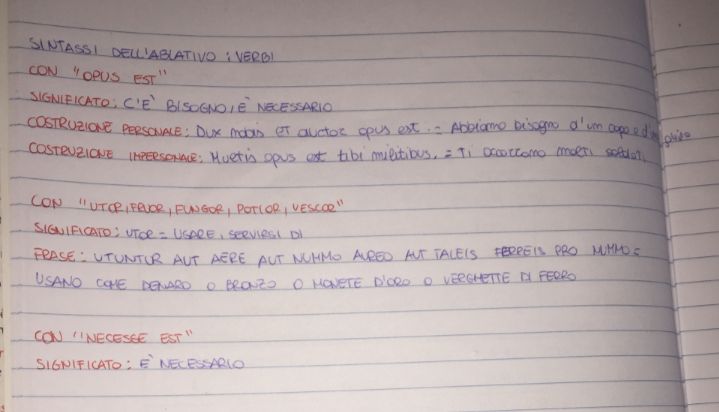 SINTASSI DELL'ABLATIVO : VERBI
CON "OPUS EST"
SIGNIFICATO: C'È BISOGNO, È NECESSARIO
COSTRUZIONE PERSONALE: Dux nobis et auctor opus est. = Abbiamo bisogno d'un capo e d'una guida
COSTRUZIONE IMPERSONALE: Multis opus est tibi militibus. = Ti occorrono molti soldati.
CON "UTOR, FRUOR, FUNGOR, POTIOR, VESCOR"
SIGNIFICATO: UTOR = USARE, SERVIRSI DI
FRASE: UTUNTUR AUT AERE AUT NUMMO AUREO AUT TALEIS FERREIS PRO NUMMO =
USANO COME DENARO O BRONZO O MONETE D'ORO O VERGHETTE DI FERRO
CON "NECESSE EST"
SIGNIFICATO: È NECESSARIO